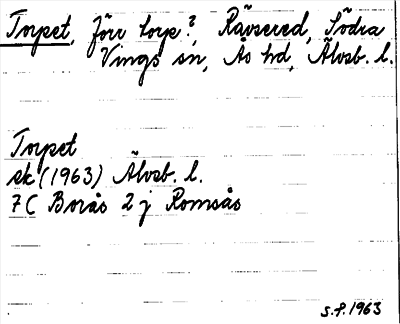 Torpet, förr torp?, Rävsered, Södra
Vings sn, Ås hd, Älvsb. l.
Torpet
sk (1963) Älvsb. l.
7C Borås 2 j Romsås
S.P. 1963